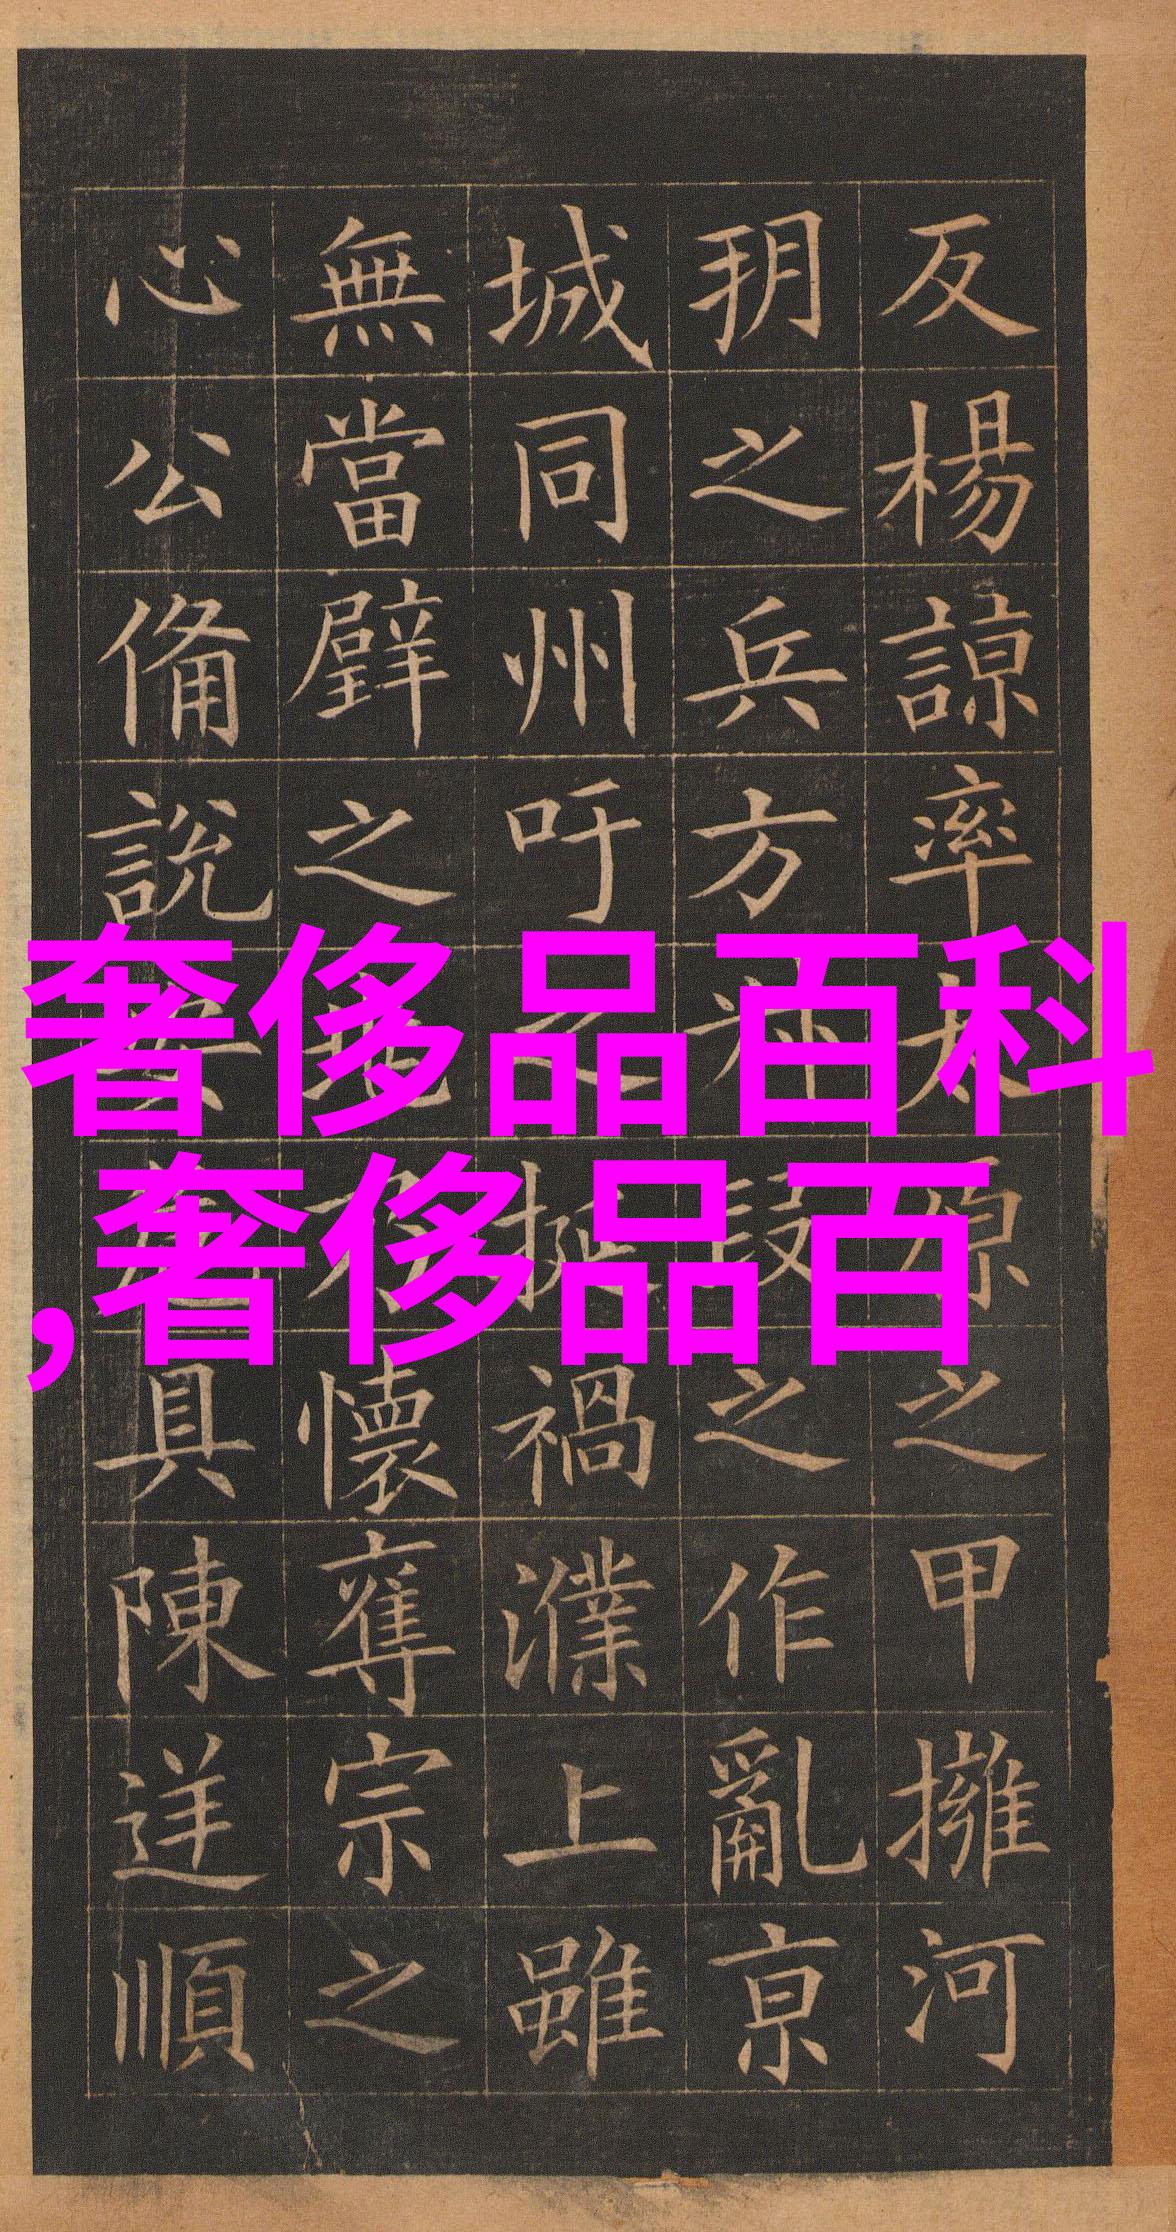 反楊諒率太原之甲擁河
玥之兵方之作亂京
城同州吁之挻禍濮上雖
無當璧之懷奪宗之
心公備說具陳逆順
奢侈品百科
,奢侈品百